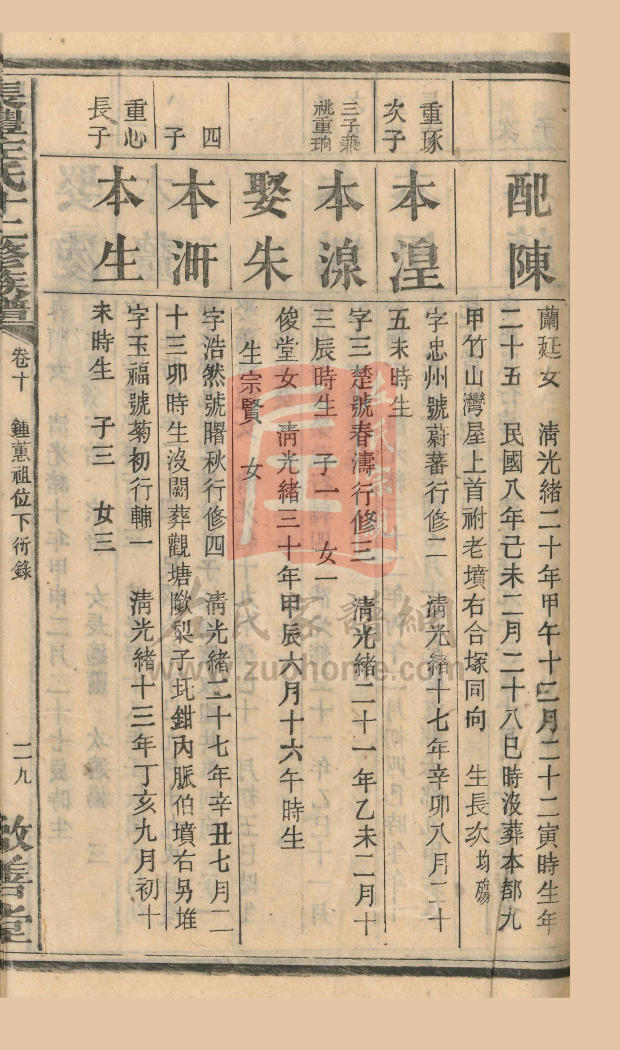 配陳
蘭廷女　清光緒二十年甲午十二月二十二寅時生年
二十五　民國八年己未二月二十八巳時沒葬本都九
甲竹山灣屋上首祔老墳右合塚同向　生長次均殤
重琢
次子
本湟
字忠州號蔚蕃行修二　清光緒十七年辛卯八月二十
五未時生
三子兼
祧重珦
本湶
字三楚號春濤行修三　清光緒二十一年乙未二月十
三辰時生　子一　女一
娶朱
俊堂女　清光緒三十年甲辰六月十六午時生
生宗賢　女
四
子
本汧
字浩然號曙秋行修四　清光緒二十七年辛丑七月二
十三卯時生沒闕葬觀塘歐梨子圫鉗內脈伯墳右另堆
重心
長子
本生
字玉福號菊初行輔一　清光緒十三年丁亥九月初十
未時生　子三　女三
左氏十二修族譜
卷十　鍾蕙祖位下衍錄
二九
敦善堂
左氏家譜網
www.zuohome.com